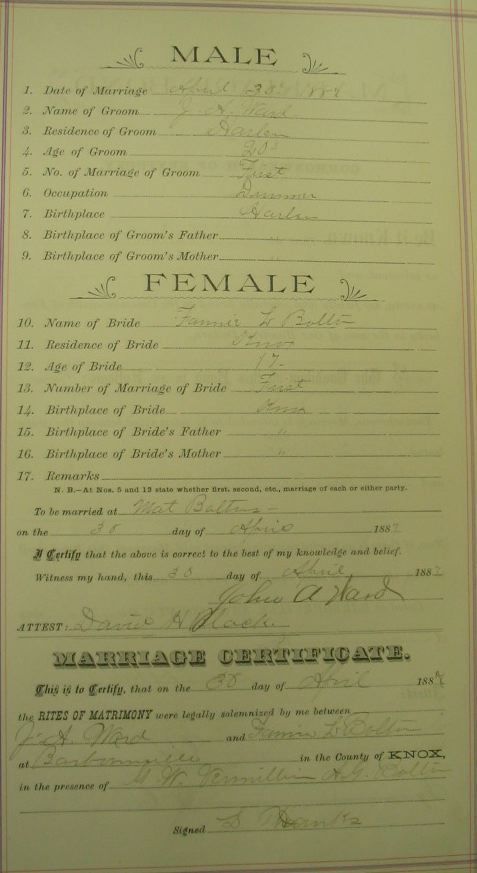 MALE
1. Date of Marriage April 30th 188
2. Name of Groom J. A. Ward
3. Residence of Groom Harlan
4. Age of Groom 20
5. No. of Marriage of Groom First
6. Occupation
7. Birthplace Harlan
8. Birthplace of Groom's Father "
9. Birthplace of Groom's Mother "
FEMALE
10. Name of Bride Fannie L Bolton
11. Residence of Bride Knox
12. Age of Bride 17-
13. Number of Marriage of Bride First
14. Birthplace of Bride Knox
15. Birthplace of Bride's Father "
16. Birthplace of Bride's Mother "
17. Remarks
N. B.—At Nos. 5 and 13 state whether first, second, etc., marriage of each or either party.
To be married at Mat Boltons-
on the 30 day of April 188
I Certify that the above is correct to the best of my knowledge and belief.
Witness my hand, this 30 day of April 188
John A Ward
ATTEST: David H
MARRIAGE CERTIFICATE.
This is to Certify, that on the 30 day of April 188
the RITES OF MATRIMONY were legally solemnized by me between
J. A. Ward and Fannie L Bolton
at Barbourville in the County of KNOX,
in the presence of G. W. Vermillion Bolton
Signed